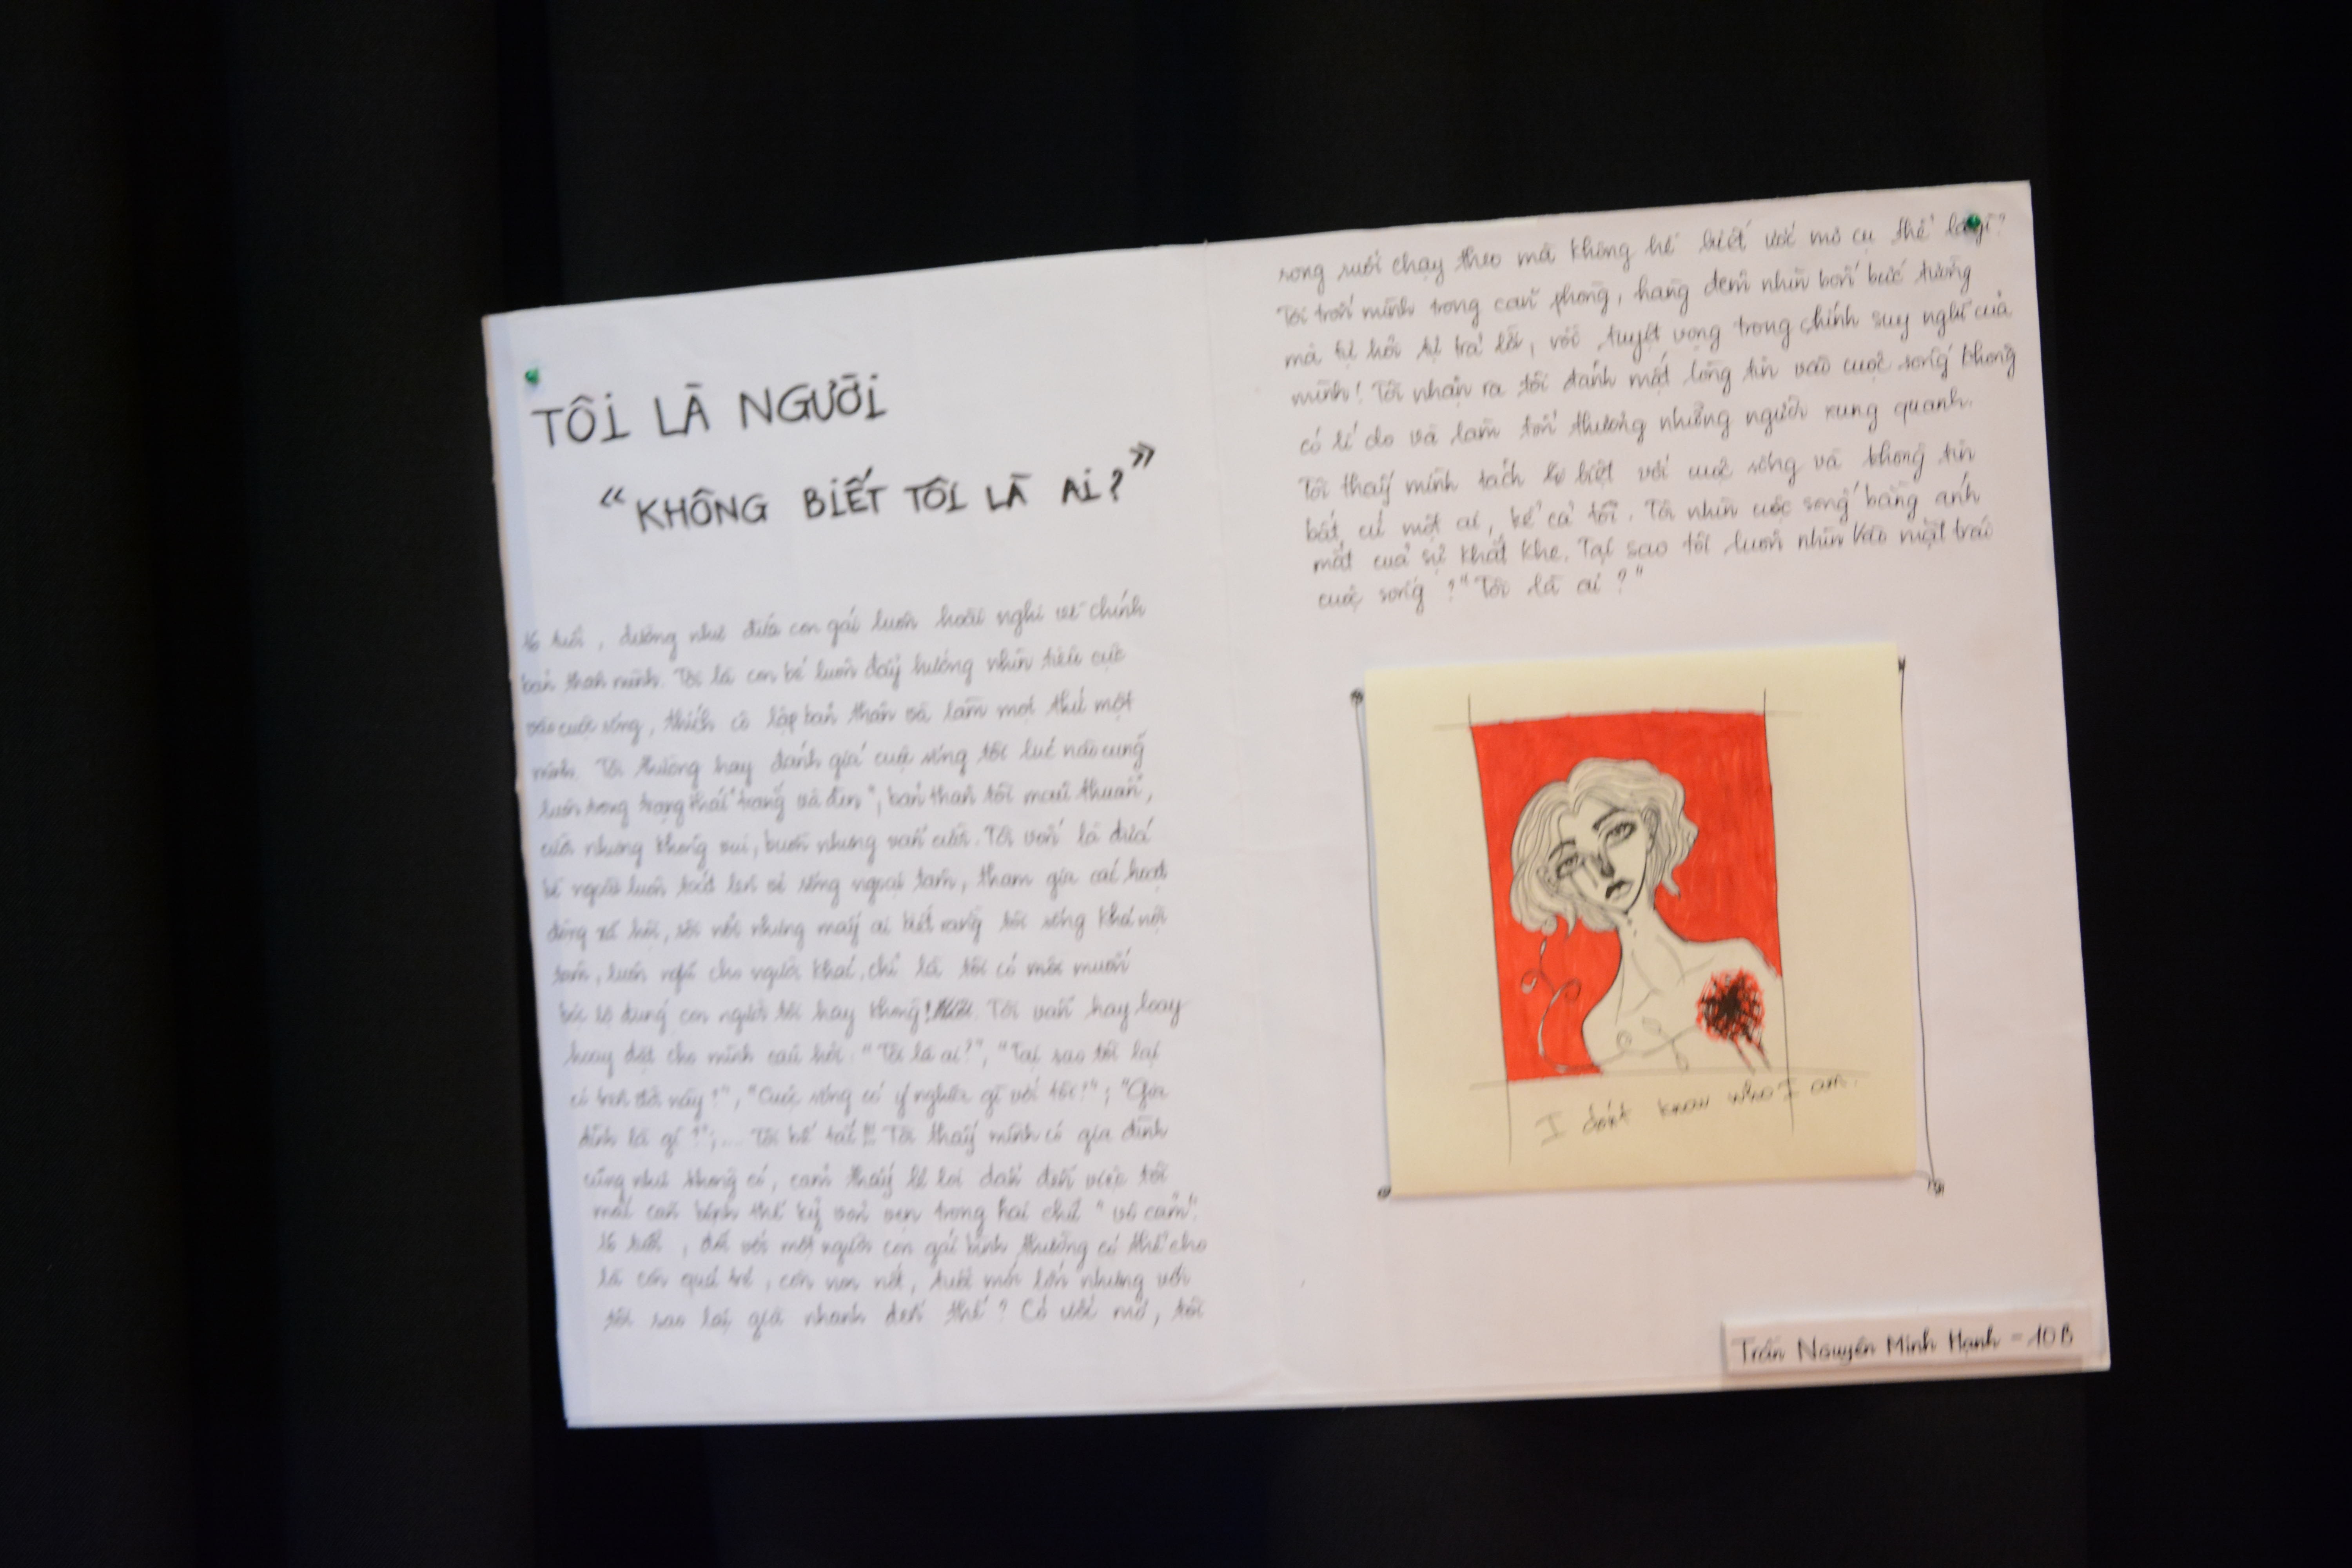 TÔI LÀ NGƯỜI
“KHÔNG BIẾT TÔI LÀ AI?”
16 tuổi, dường như đứa con gái luôn hoài nghi về chính
bản thân mình. Tôi là con bé luôn đầy hướng nhìn tiêu cực
vào cuộc sống, thích cô lập bản thân và làm mọi thứ một
mình. Tôi thường hay đánh giá cuộc sống tôi lúc nào cũng
luôn trong trạng thái "trắng và đen", bản thân tôi mâu thuẫn,
cười nhưng không vui, buồn nhưng vẫn cười. Tôi vốn là đứa
bề ngoài luôn toát lên vẻ sống ngoại tâm, tham gia các hoạt
động xã hội, sôi nổi nhưng mấy ai biết rằng tôi sống khá nội
tâm, luôn nghĩ cho người khác, chỉ là tôi có muốn
bộc lộ đúng con người tôi hay không! Tôi vẫn hay loay
hoay đặt cho mình câu hỏi: "Tôi là ai?", "Tại sao tôi lại
có trên đời này?", "Cuộc sống có ý nghĩa gì với tôi?"; "Gia
đình là gì?";... Tôi bế tắc!!! Tôi thấy mình có gia đình
cũng như không có, cảm thấy lẻ loi dẫn đến việc tôi
mắc căn bệnh thế kỷ vỏn vẹn trong hai chữ "vô cảm".
16 tuổi, đối với một người con gái bình thường có thể cho
là còn quá trẻ, còn non nớt, tuổi mới lớn nhưng với
tôi sao lại già nhanh đến thế? Có ước mơ, tôi
rong ruổi chạy theo mà không hề biết ước mơ cụ thể là gì?
Tôi trốn mình trong căn phòng, hàng đêm nhìn bốn bức tường
mà tự hỏi tự trả lời, với tuyệt vọng trong chính suy nghĩ của
mình! Tôi nhận ra tôi đánh mất lòng tin vào cuộc sống không
có lí do và làm tổn thương những người xung quanh.
Tôi thấy mình tách biệt với cuộc sống và không tin
bất cứ một ai, kể cả tôi. Tôi nhìn cuộc sống bằng ánh
mắt của sự khắt khe. Tại sao tôi luôn nhìn vào mặt trái
cuộc sống? "Tôi là ai?"
I don't know who I am.
Trần Nguyễn Minh Hạnh - 10B